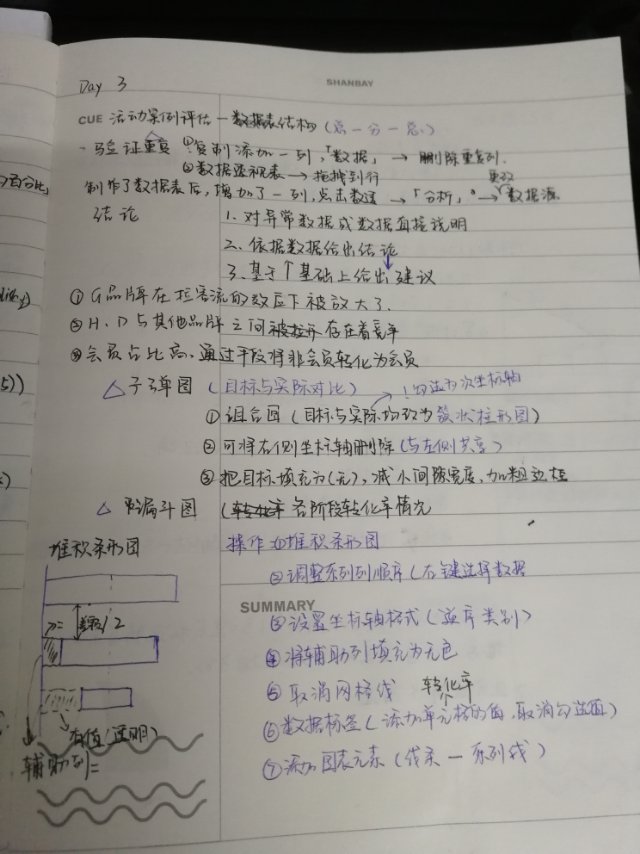 Day 3
SHANBAY
CUE 活动案例评估—数据表结构(总—分—总)
- 验证重复 ①复制添加一列,「数据」→ 删除重复列.
②数据透视表 → 拖拽到行
更改
制作了数据表后,增加了一列,点击数透 →「分析」→「数据源
结论 1. 对异常数据或数据直接说明
2. 依据数据给出结论
3. 基于↑基础上给出建议
① G品牌在拉客流的效应下被放大了.
② H、D与其他品牌之间 存在着差距
③ 会员占比高,通过手段将非会员转化为会员
△ 子弹图 (目标与实际对比) 勾选为次坐标轴
① 组合图 (目标与实际均改为簇状柱形图)
② 可将右侧坐标轴删除 (与左侧共享)
③ 把目标填充为(无),减小间隙宽度,加粗边框
△ 漏斗图 (各阶段转化率情况
堆积条形图 操作 ①堆积条形图
②调整系列列顺序 (右键选择数据
SUMMARY
③设置坐标轴格式 (逆序类别)
差额/2
④将辅助列填充为无色
⑤取消网格线 转化率
⑥数据标签 (添加单元格的值,取消勾选值)
(透明)
⑦添加图表元素 (线条 — 系列线)
辅助列=